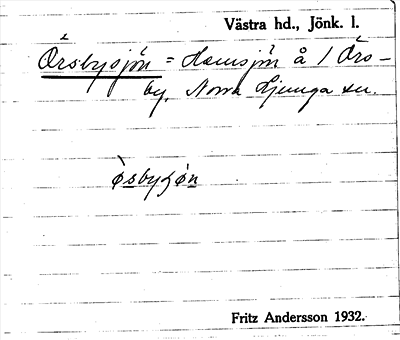 Västra hd., Jönk. l.
Örsbysjön = Hamsjön å 1 Örs-
by, Norra Ljunga sn.
Fritz Andersson 1932.